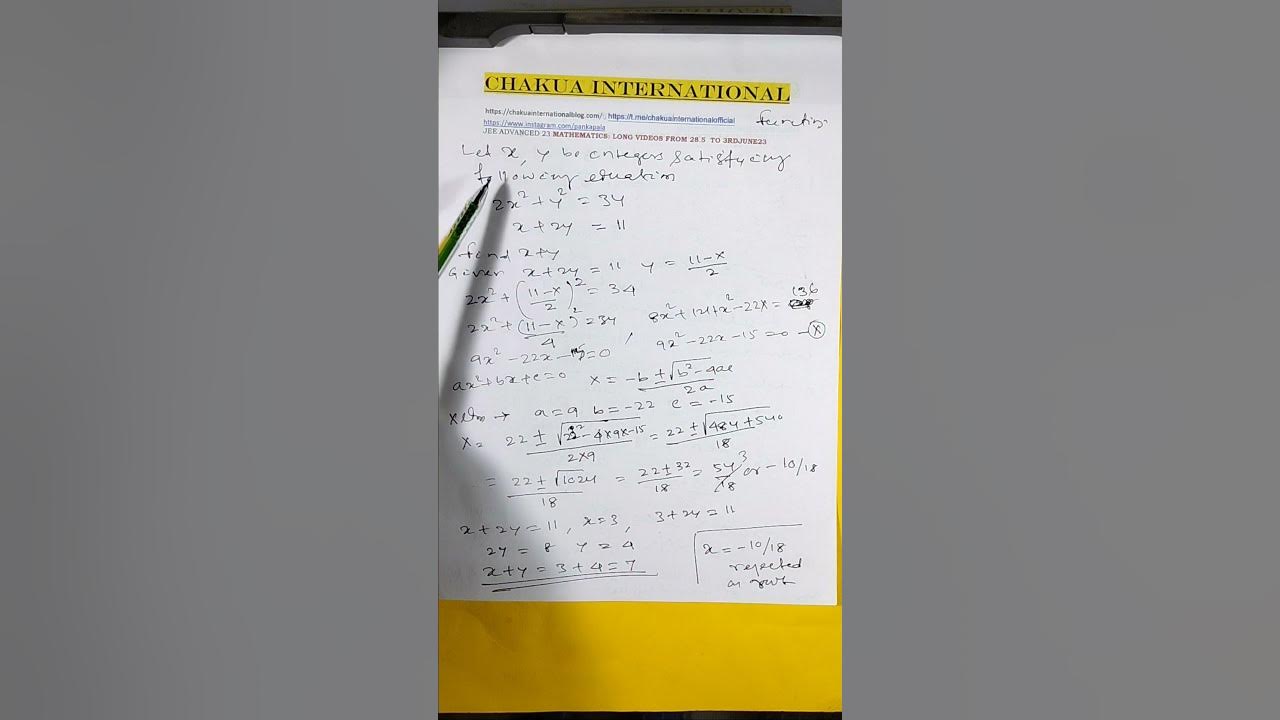 CHAKUA INTERNATIONAL
https://chakuainternationalblog.com/ ; https://t.me/chakuainternationalofficial
https://www.instagram.com/pankapala
JEE ADVANCED 23 MATHEMATICS: LONG VIDEOS FROM 28.5 TO 3RDJUNE23
Let x, y be integers satisfying
following equation
2x² + y² = 34
x + 2y = 11
find x+y
Given x + 2y = 11 y = (11-x)/2
2x² + ((11-x)/2)² = 34
2x² + (11-x)²/4 = 34 , 8x² + 121 + x² - 22x = 136
9x² - 22x - 15 = 0 , 9x² - 22x - 15 = 0 - (x)
ax² + bx + c = 0 x = (-b ± √(b² - 4ac))/2a
a = 9 b = -22 c = -15
x = (22 ± √(22² - 4×9×-15))/(2×9) = (22 ± √(484 + 540))/18
= (22 ± √1024)/18 = (22 ± 32)/18 = 54/18 3 or -10/18
x + 2y = 11, x = 3, 3 + 2y = 11
2y = 8 y = 4
x + y = 3 + 4 = 7
x = -10/18
rejected